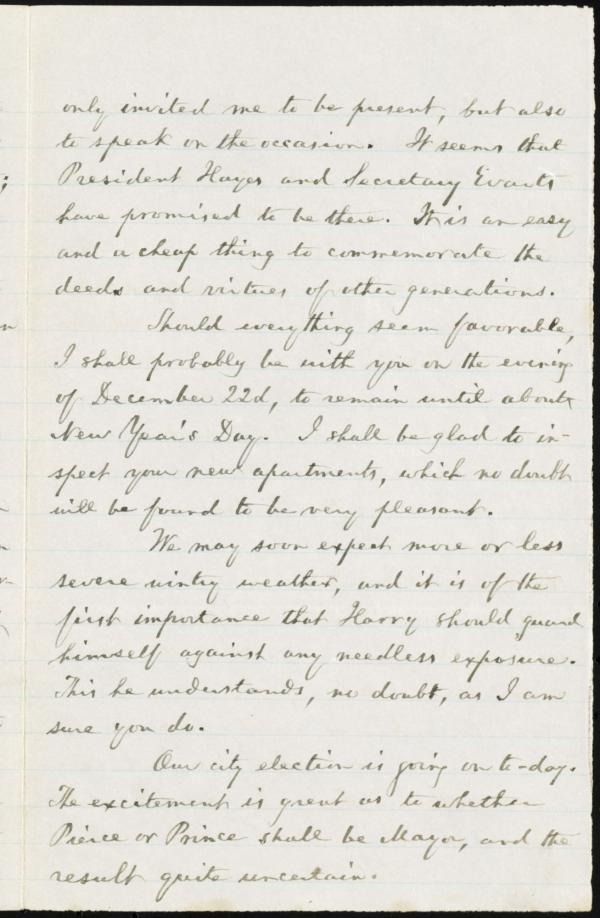 only invited me to be present, but also
to speak on the occasion. It seems that
President Hayes and Secretary Evarts
have promised to be there. It is an easy
and a cheap thing to commemorate the
deeds and virtues of other generations.
Should everything seem favorable,
I shall probably be with you on the evening
of December 22d, to remain until about
New Year's Day. I shall be glad to in-
spect your new apartments, which no doubt
will be found to be very pleasant.
We may soon expect more or less
severe wintry weather, and it is of the
first importance that Harry should guard
himself against any needless exposure.
This he understands, no doubt, as I am
sure you do.
Our city election is going on to-day.
The excitement is great as to whether
Pierce or Prince shall be Mayor, and the
result quite uncertain.